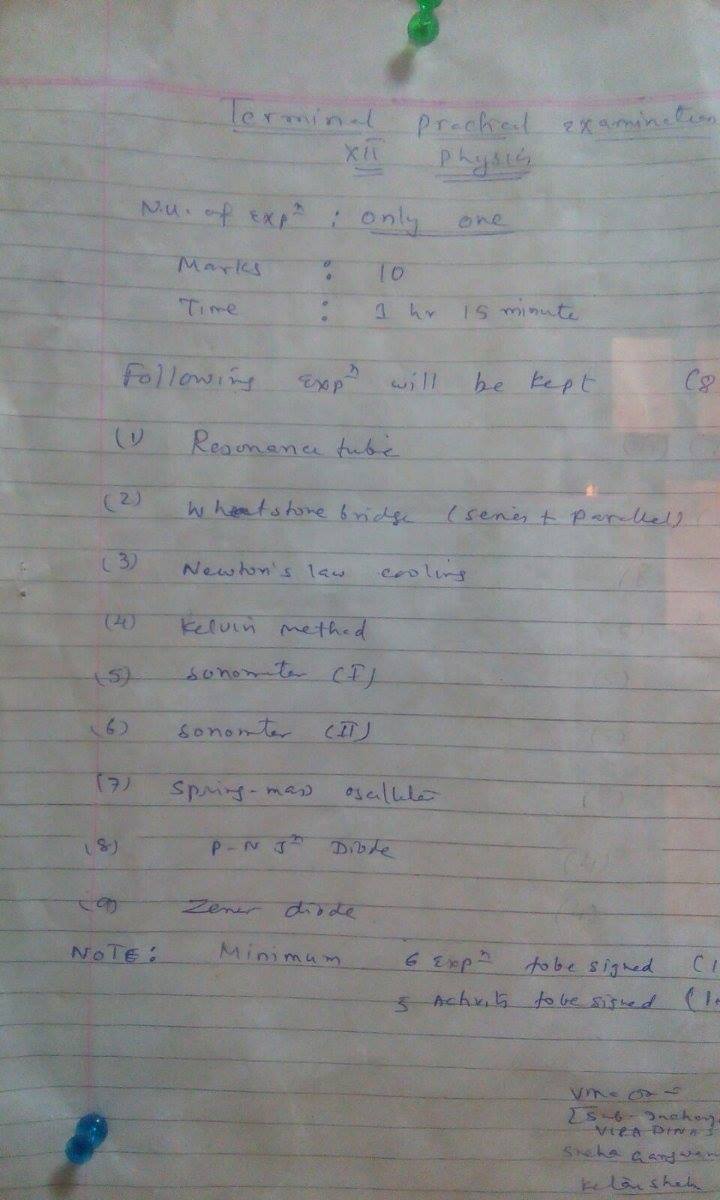 Terminal practical examination
XII Physics
N.U. of Expn : only one
Marks : 10
Time : 1 hr 15 minute
Following Expn will be kept (8
(1) Resonance tube
(2) Wheatstone bridge (series + Parallel)
(3) Newton's law cooling
(4) Kelvin method
(5) sonometer (I)
(6) sonomter (II)
(7) Spring-mass oscillator
(8) P-N Jn Diode
(9) Zener diode
NOTE: Minimum 6 Expn to be signed (1
5 Activity to be signed (1+
[Sub-Incharge
VIRA DINA
Sneha Gangwan
Ketan shah